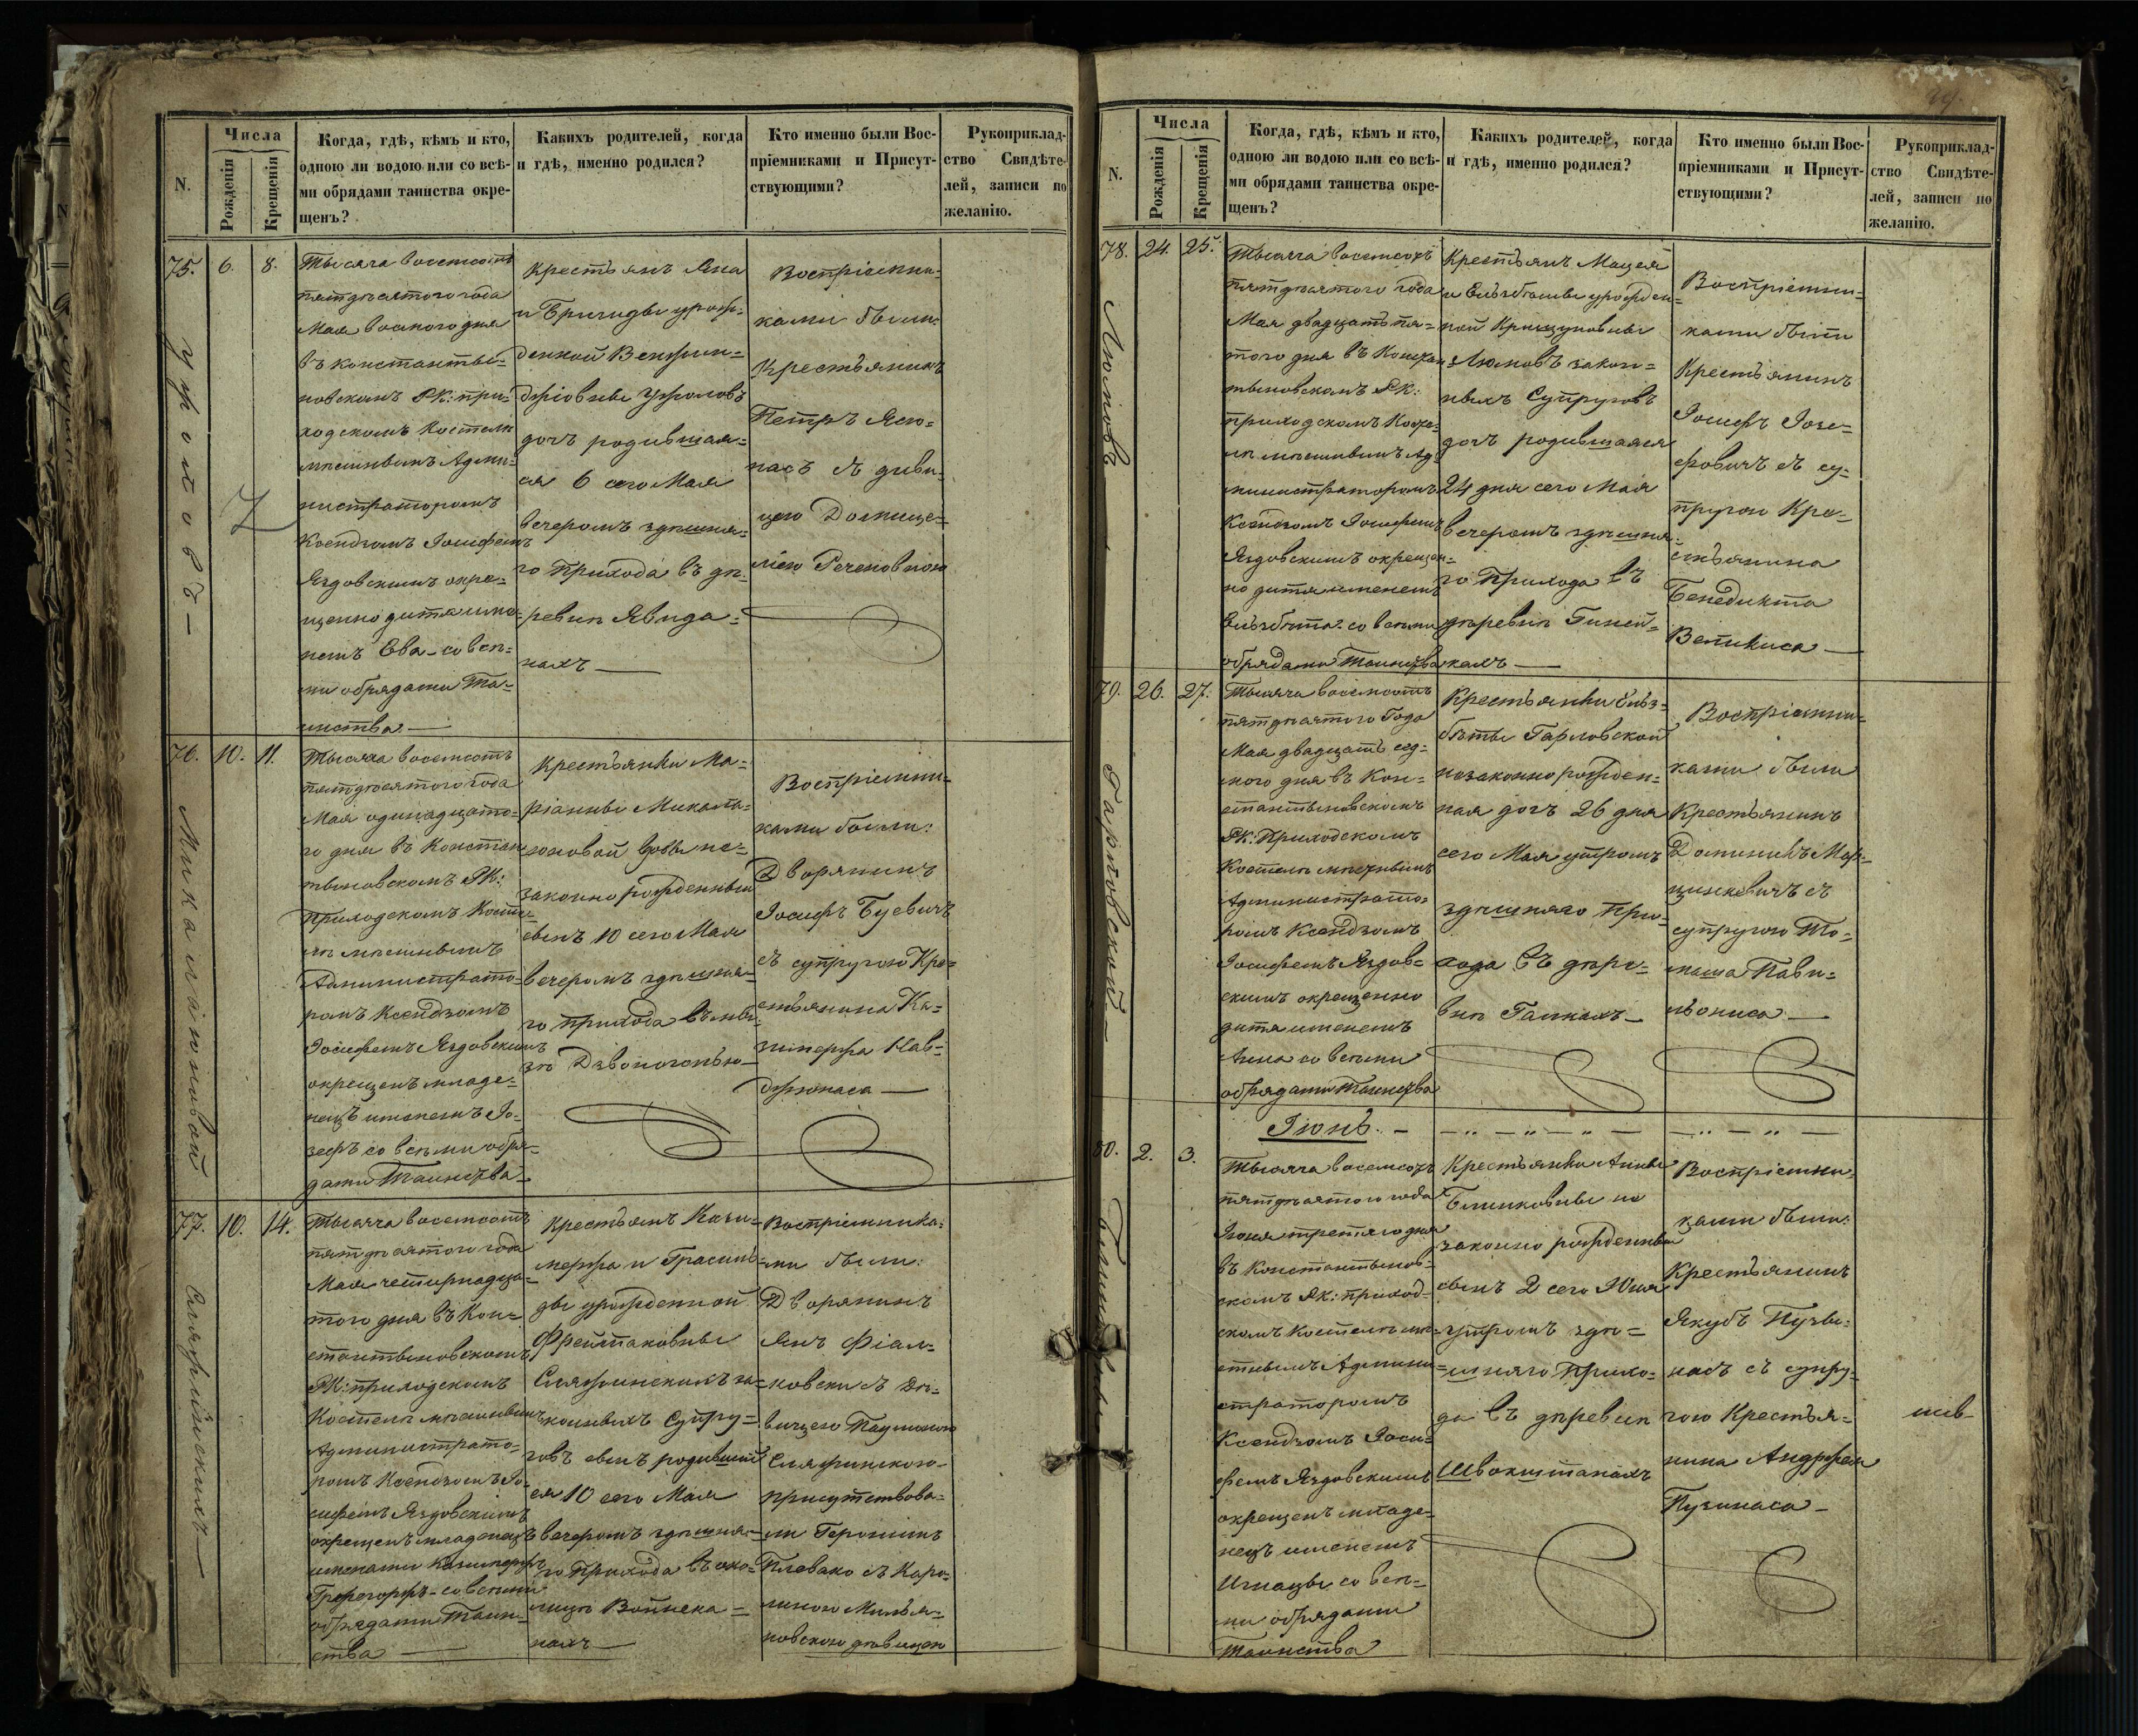 Числа
N.
Рожденія
Крещенія
Когда, гдѣ, кѣмъ и кто,
одною ли водою или со всѣ-
ми обрядами таинства окре-
щенъ?
Какихъ родителей, когда
и гдѣ, именно родился?
Кто именно были Вос-
пріемниками и Присут-
ствующими?
Рукоприклад-
ство Свидѣте-
лей, записи по
желанію.
75.
6.
8.
Тысяча восемсотъ
пятдѣсятого года
Мая восмого дня
въ Константы-
новскомъ РК: при-
ходскомъ Костелѣ
мѣстнымъ Адми-
нистраторомъ
Ксендзомъ Іосифомъ
Яздовскимъ окре-
щенно дитя име-
немъ Ева - со всѣ-
ми обрядами Та-
инства
Крестьянъ Яна
и Бригиды урож-
денной
дочъ родившая-
ся 6 сего Мая
вечеромъ здѣшня-
го Прихода въ дѣ-
ревнѣ Явида-
нахъ
Воспріемни-
ками были:
Крестьянинъ
Петръ Ясю-
насъ съ дѣви-
цею Домице-
лею Речеповною
76.
10.
11.
Микалаюновой
Тысяча восемсотъ
пятдѣсятого года
Мая одинадцато-
го дня въ Констан
тыновскомъ РК:
приходскомъ Косте-
лѣ мѣстнымъ
Администрато-
ромъ Ксендзомъ
Іосифомъ Яздовскимъ
окрещенъ младе-
нецъ именемъ Іо-
зефъ со всѣми обря-
дами Таинства
Крестьянки Ма-
ріанны Микала-
юновой вдовы не-
законно рожденный
сынъ 10 сего Мая
вечеромъ здѣшня-
го прихода въ
Воспріемни-
ками были:
Дворянинъ
Іосифъ Буевичъ
съ супругою Кре-
стьянина Ка-
зимержа Нав-
джюнаса
77.
10.
14.
Тысяча восемсотъ
пятдѣсятого года
Мая четырнадца-
того дня въ Кон-
стантыновскомъ
РК: приходскомъ
Костелѣ мѣстнымъ
Администрато-
ромъ Ксендзомъ Іо-
сифомъ Яздовскимъ
окрещенъ младенецъ
именами Казимержъ
Гржегоржъ - со всѣми
обрядами Таин-
ства
Крестьянъ Кази-
межра и Грасиль-
ды урожденной
за-
конныхъ Супру-
говъ сынъ родившій
ся 10 сего Мая
вечеромъ здѣшня-
го Прихода въ око-
лицѣ Войнека-
нахъ
Воспріемника-
ми были:
Дворянинъ
Янъ Фіал-
ковски съ Дѣ-
вицею
присутствова-
ли Геронимъ
Плевако съ Каро-
линою Милья-
новскою дѣвицею
Числа
N.
Рожденія
Крещенія
Когда, гдѣ, кѣмъ и кто,
одною ли водою или со всѣ-
ми обрядами таинства окре-
щенъ?
Какихъ родителей, когда
и гдѣ, именно родился?
Кто именно были Вос-
пріемниками и Присут-
ствующими?
Рукоприклад-
ство Свидѣте-
лей, записи по
желанію.
78.
24.
25.
Люмповъ
Тысяча восемсотъ
пятдѣсятого года
Мая двадцать пя-
того дня въ Констан
тыновскомъ РК:
приходскомъ Косте-
лѣ мѣстнымъ Ад-
министраторомъ
Ксендзомъ Іосифомъ
Яздовскимъ окрещен-
но дитя именемъ
Ельзбѣта со всѣми
обрядами Таинства
Крестьянъ Мацея
и Ельзбѣты урожден-
ной
закон-
ныхъ Супруговъ
дочъ родившаяся
24 дня сего Мая
вечеромъ здѣшня-
го Прихода въ
дѣревнѣ Гиней-
кахъ
Воспріемни-
ками были
Крестьянинъ
Іосифъ Іозе-
фовичъ съ су-
пругою Кре-
стьянина
Бенедикта
79.
26.
27.
Гарловской
Тысяча восемсотъ
пятдѣсятого Года
Мая двадцать сед-
мого дня въ Кон-
стантыновскомъ
РК: Приходскомъ
Костелѣ мѣстнымъ
Администрато-
ромъ Ксендзомъ
Іосифомъ Яздов-
скимъ окрещенно
дитя именемъ
Анна со всѣми
обрядами Таинства
Крестьянки Ельз-
бѣты Гарловской
незаконно рожден-
ная дочъ 26 дня
сего Мая утромъ
здѣшняго При-
хода въ дѣре-
внѣ
Воспріемни-
ками были
Крестьянинъ
Доминикъ Мар-
цинкевичъ съ
супругою То-
маша Пави-
льониса
Іюнъ.
80.
2.
3.
Тысяча восемсотъ
пятдѣсятого года
Іюня третяго дня
въ Константынов-
скомъ РК: приход-
скомъ Костелѣ мѣ-
стнымъ Админи-
страторомъ
Ксендзомъ Іоси-
фомъ Яздовскимъ
окрещенъ младе-
нецъ именемъ
Игнацы со всѣ-
ми обрядами
Таинства
Крестьянки Анны
не
законно рожденный
сынъ 2 сего Юня
утромъ здѣ-
шняго Прихо-
да въ дѣревнѣ
Швокштанахъ
Воспріемни-
ками были:
Крестьянинъ
Якубъ Пузы-
насъ съ супру-
гою Крестья-
нина Андржея
Пузинаса